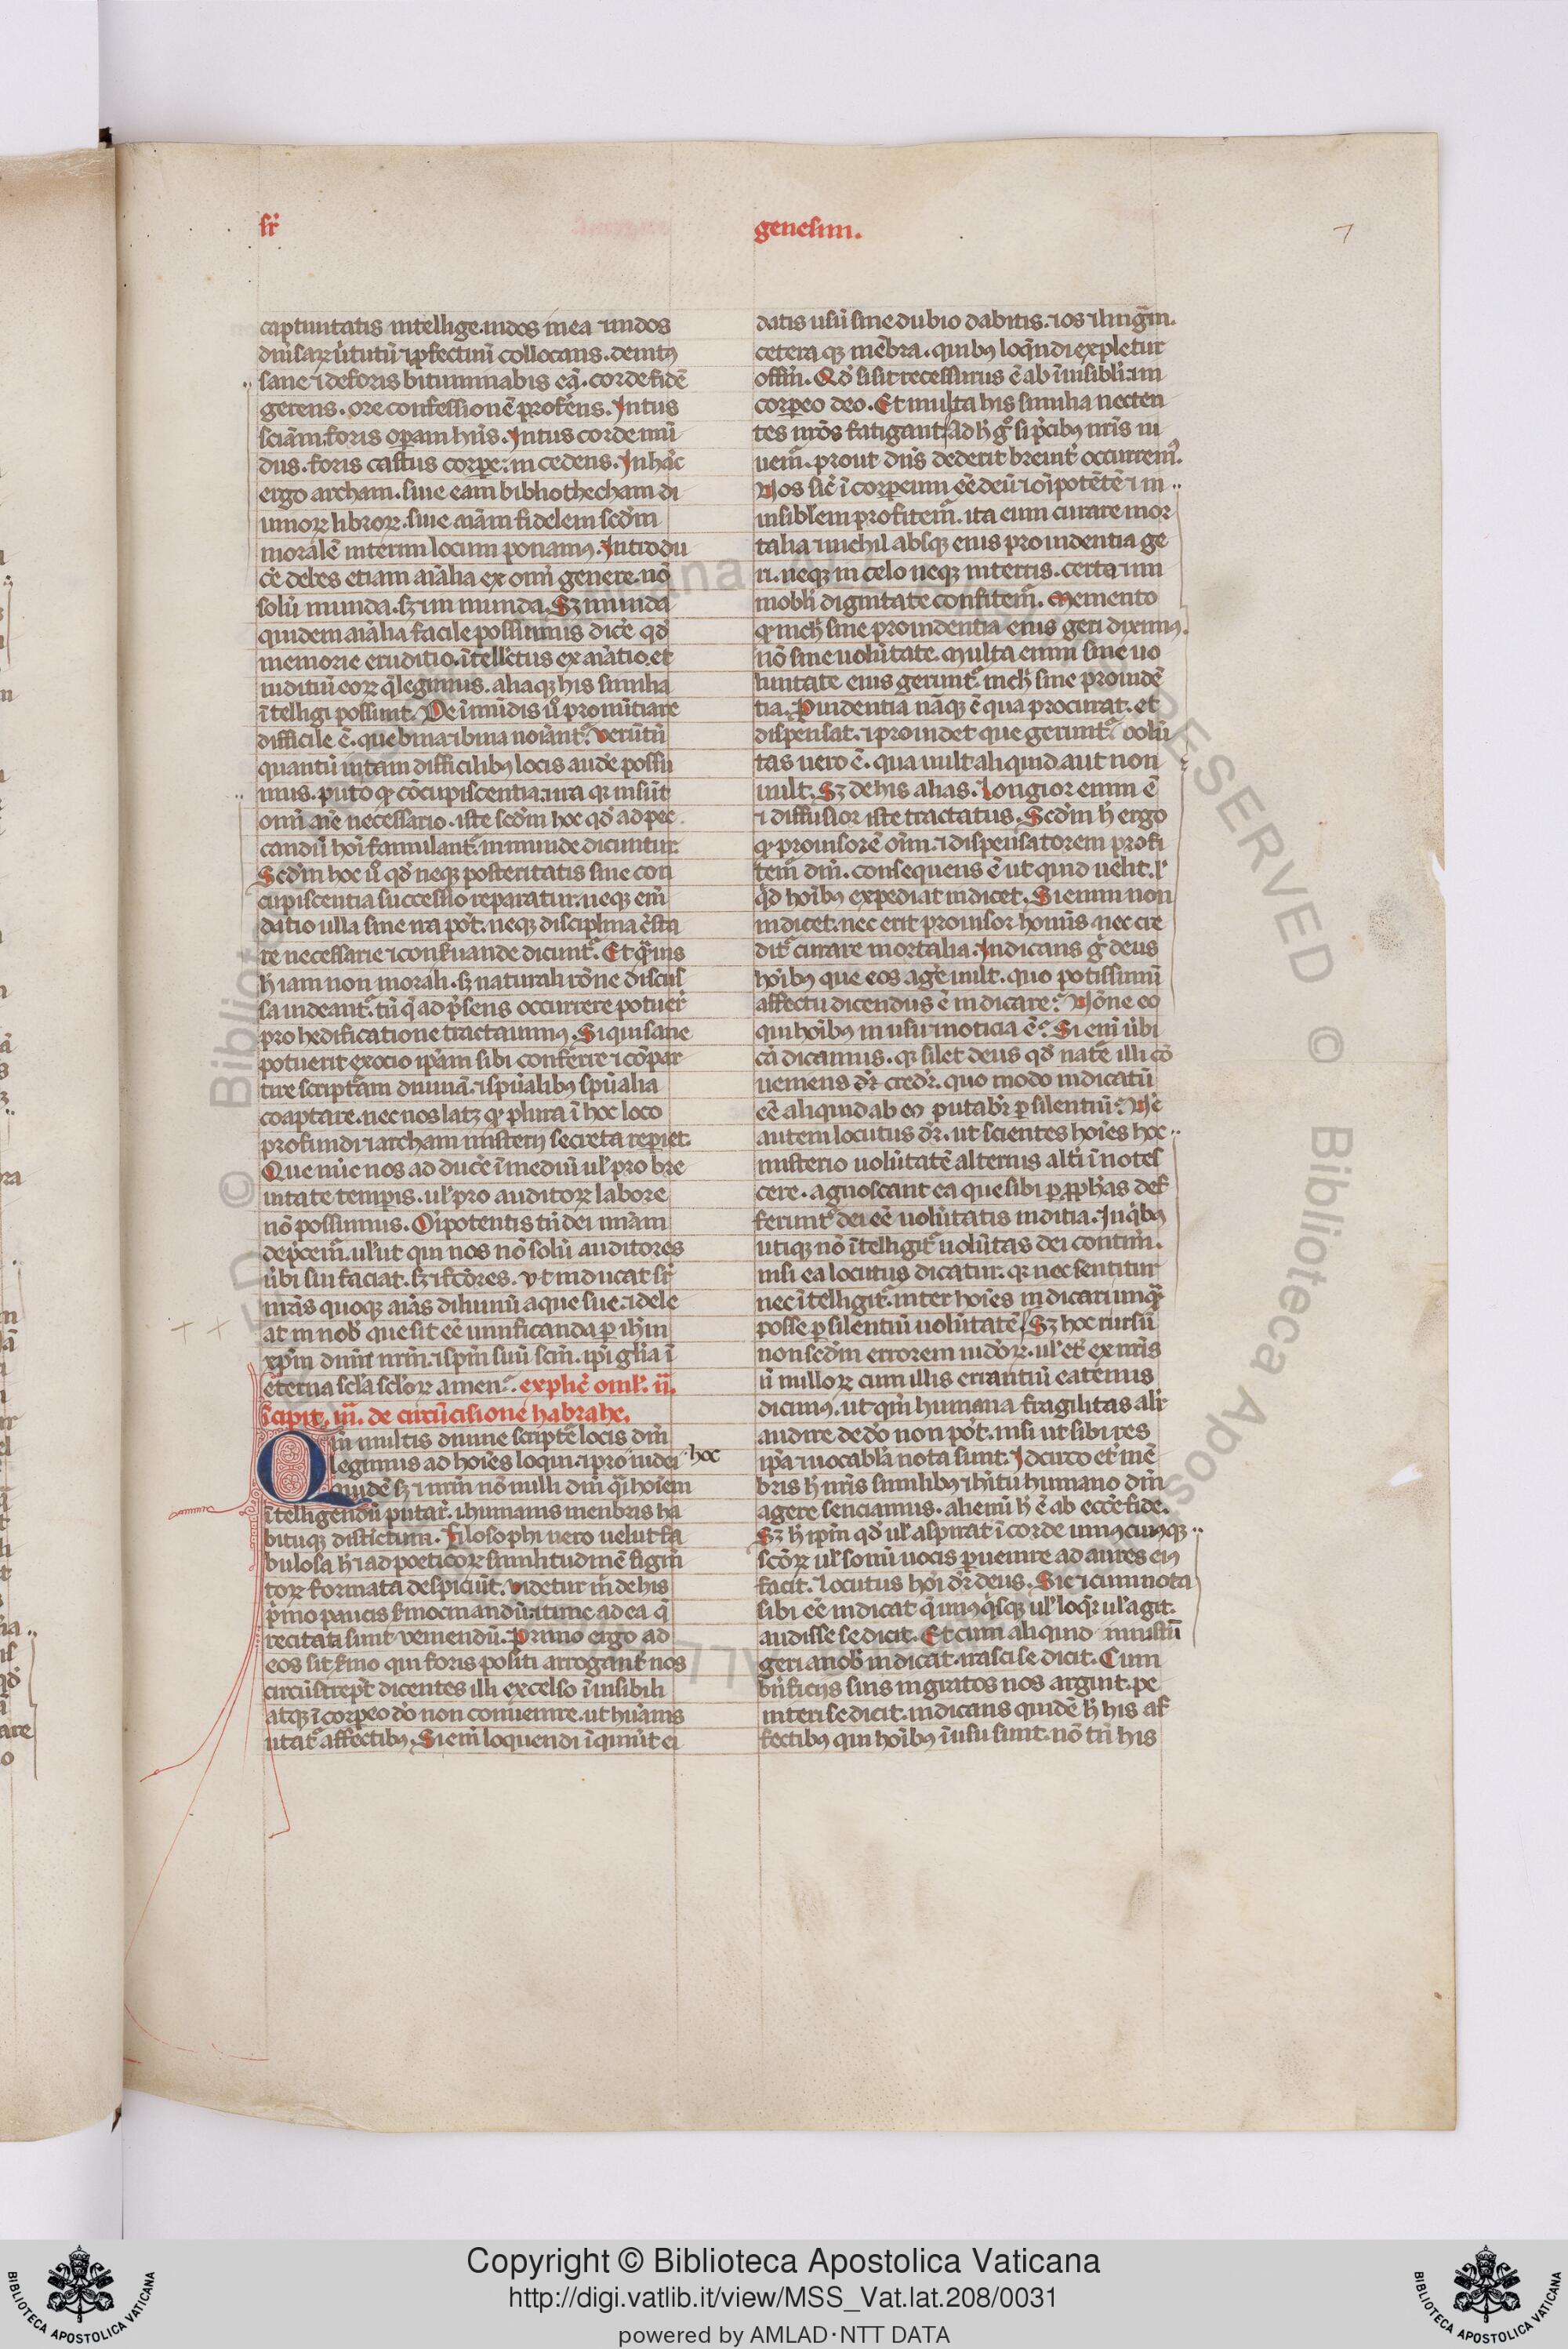 sr̄
genesim.
7
captiuitatis intellige. nidos mea ⁊ nidos
diu̾saꝝ u̾tutū ⁊ ꝓfectuū collocans. deintꝰ
sane ⁊ deforis bituminabis eā. corde fidē
gerens. ore confessionē proferēs. Intus
sciām. foris opam hn̄s. Intus corde mū
dus. foris castus corpe: incedens. In hāc
ergo archam. siue eam bibliothecham di
uinoꝝ libroꝝ. siue aīam fidelem scd̄m
moralē interim locum ponamꝰ. Introdu
cē debes etiam aīalia ex omī genere. nō
solū munda. sꝫ ⁊ inmunda. Sꝫ munda
quidem aīalia facile possumus dicē qd̄
memorie eruditio. ītellc̄tus examatio. et
iuditiū eoꝝ q̄ legimus. aliaqꝫ his similia
ītelligi possunt. De īmūdis uº pronūtiare
difficile ē. que bina ⁊ bina noīant᷑. Verūtū
quantū in tam difficilibꝰ locis audē possu
mus. puto ꝙ cōcupiscentia. ⁊ ira qr insūt
omī aīe necessario. iste scd̄m hoc qd̄ ad pec
candū hoī famulant᷑. inmunde dicuntur.
Scd̄m hoc uº qd̄ neqꝫ posteritatis sine con
cupiscentia successio reparatur. neqꝫ em̄
datio ulla sine ira pōt. neqꝫ disciplina c̄sta
re necessarie ⁊ conseruande dicunt᷑. Et q̄uis
h̄ iam non morali. sꝫ naturali rōne discus
sa uideant᷑. tū q̄ ad p̄sens occurrere potuer̄
pro hedificatione tractauimꝰ. Si qui sane
potuerit ex ocio ip̄am sibi conferre ⁊ cōpar
tire scriptʳam diuinā. ⁊ spūalibꝰ spūalia
coaptare. nec nos latꝫ ꝙ plura ī hoc loco
profundi ⁊ archam misterij secreta repiet.
Que nūc nos ad ducē ī mediū ul̄ pro bre
uitate tempis. ul̄ pro auditoꝝ labore
nō possumus. Oīpotentis tn̄ dei miām
dep̄cem᷑. ul̄ ut qui nos nō solū auditores
u̾bi sui faciat. sꝫ ⁊ fcōres. vt inducat sr̄
nr̄as quoqꝫ aīas diluuiū aque sue. ⁊ dele
at in nob̄ que sit eē uiuificanda p ih̄m
xp̄m dnm̄ nrm̄. ⁊ spm̄ suū scm̄. ipi gl̄ia ī
eterna scl̄a scl̄oꝝ amen. explic̄ oml̄. ii.
Īcipit. iii. de circūcisione habrahe.
Qm̄ multis diuine scriptʳe locis dm̄
legimus ad hoīes loqui. ⁊ pro iudei hoc
quidē sꝫ ⁊ nrm̄ nō nulli dm̄ q̄i hoīem
ītelligendū putar̄. i humanis menbris ha
bituqꝫ distictum. Filosophi uero uelut fa
bulosa h̄ ⁊ ad poeticoꝝ similitudinē figm̄
toꝝ formata despiciūt. Videtur m̄ de his
p̄mo paucis s̄mocinandū. ⁊ tunc ad ea q̄
recitata sunt veniendū. Primo ergo ad
eos sit s̄mo qui foris positi arrogant̄ nos
circūstrept̄ dicentes illi excelso īuisibili
atqꝫ īcorpeo dō non conuenire. ut hūanis
utat᷑ affectibꝰ. Si em̄ loquendi īquiūt ei
datis usū sine dubio dabitis. ⁊ os ⁊ lingām.
cetera qꝫ mēbra. quibꝰ loqn̄di expletur
offm̄. Qd̄ si sit recessurus ē ab īuisibli ⁊ in
corpeo deo. Et multa his similia necten
tes nr̄os fatigant. Ad h̄ gº si p̄cibꝰ nr̄is iu
uem᷑. prout dn̄s dederit breuit̄ occurremꝰ.
Nos sic̄ īcorpeum eē deū ⁊ oīpotētē ⁊ in
uisiblem profitem᷑. ita eum curare mor
talia ⁊ nichil absqꝫ eius prouidentia ge
ri. neqꝫ in celo neqꝫ in terris. certa ⁊ im
mobli dignitate confitem᷑. Memento
ꝙ nich̄ sine prouidentia eius geri diximꝰ.
nō sine uolūtate. Multa enim sine uo
luntate eius gerunt᷑. nich̄ sine prouidē
tia. Prouidentia nāqꝫ ē qua procurat. et
dispensat. ⁊ prouidet que gerunt᷑. Volū
tas uero ē. qua uult aliquid aut non
uult. Sꝫ de his alias. Longior enim ē
⁊ diffusior iste tractatus. Scd̄m h̄ ergo
ꝙ prouisorē oīm. ⁊ dispensatorem profi
tem᷑ dm̄. consequens ē ut quid uelit. ul̄
qd̄ hoībꝰ expediat indicet. Si enim non
indicet. nec erit prouisor homīs. nec cre
dit᷑ curare mortalia. Indicans gº deus
hoībꝰ que eos agē uult. quo potissimū
affectu dicendus ē indicare. Nōne eo
qui hoībꝰ in usu ⁊ noticia ē. Si em̄ u̾bi
cā dicamus. qr silet deus qd̄ natʳe illi cō
ueniens dr̄ credr̄. quo modo indicatū
eē aliquid ab eo putabr̄ p silentiū. Nc̄
autem locutus dr̄. ut scientes hoīes hoc
misterio uolūtatē alterius alt̄i īnotes
cere. agnoscant ea que sibi p ꝓph̄as def
ferunt᷑ dei eē uolūtatis inditia. In qͥbꝰ
utiqꝫ nō ītelligit᷑ uolūtas dei contin̄.
nisi ea locutus dicatur. qr nec sentitur
nec ītelligit᷑. inter hoīes indicari unqͣ
posse p silentiū uolūtatē. Sꝫ hoc rursū
non scd̄m errorem iudoꝝ. ul̄ et̄ ex nr̄is
ū nulloꝝ cum illis errantiū eatenus
dicimꝰ. ut qm̄ humana fragilitas alr̄
audire de dō non pōt. nisi ut sibi res
ip̄a ⁊ uocabla nota sunt. Idcirco et̄ mē
bris h̄ nr̄is similibꝰ ⁊ h̄itu humano dm̄
agere senciamus. alienū h̄ ē ab eccē fide.
Sꝫ h̄ ipm̄ qd̄ ul̄ aspirat ī corde uniꝰcuiꝰqꝫ
scōꝝ ul̄ sonū uocis puenire ad aures eiꝰ
facit. locutus hoī dr̄ deus. Sic ⁊ cum nota
sibi eē indicat q̄ unꝰqͥsqꝫ ul̄ loqr̄ ul̄ agit.
audisse se dicit. Et cum aliquid iniustū
geri a nob̄ indicat. irasci se dicit. Cum
bn̄ficijs suis ingratos nos arguit. pe
nitere se dicit. indicans quidē h̄ his af
fectibꝰ qui hoībꝰ ī usu sunt. nō tn̄ his
Copyright © Biblioteca Apostolica Vaticana
http://digi.vatlib.it/view/MSS_Vat.lat.208/0031
powered by AMLAD·NTT DATA